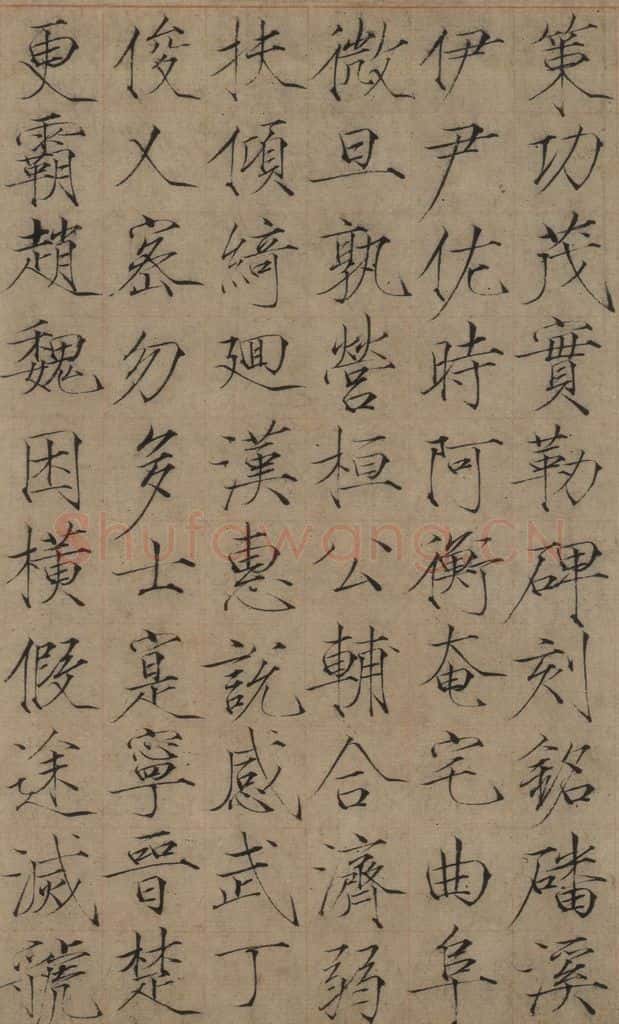 策功茂實勒碑刻銘磻溪
伊尹佐時阿衡奄宅曲阜
微旦孰營桓公輔合濟弱
扶傾綺迴漢惠說感武丁
俊乂密勿多士寔寧晉楚
更霸趙魏困橫假途滅虢
Shufawang.CN